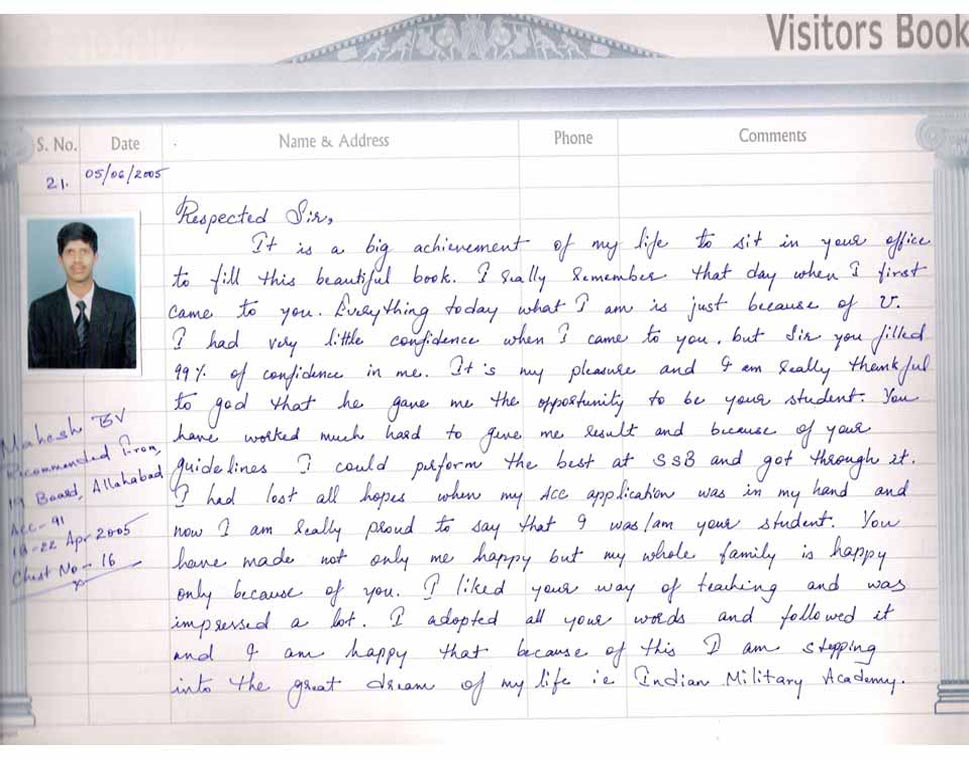 Visitors Book
S. No. Date Name & Address Phone Comments
21. 05/06/2005
Respected Sir,
It is a big achievement of my life to sit in your office
to fill this beautiful book. I really remember that day when I first
came to you. Everything today what I am is just because of U.
I had very little confidence when I came to you, but Sir you filled
99% of confidence in me. It is my pleasure and I am really thankful
to god that he gave me the opportunity to be your student. You
have worked much hard to give me result and because of your
guidelines I could perform the best at SSB and got through it.
I had lost all hopes when my ACC application was in my hand and
now I am really proud to say that I was/am your student. You
have made not only me happy but my whole family is happy
only because of you. I liked your way of teaching and was
impressed a lot. I adopted all your words and followed it
and I am happy that because of this I am stepping
into the great dream of my life i.e Indian Military Academy.
Mahesh BV
Recommended From,
19 Board, Allahabad
ACC-91
-22 Apr 2005
Chest No - 16